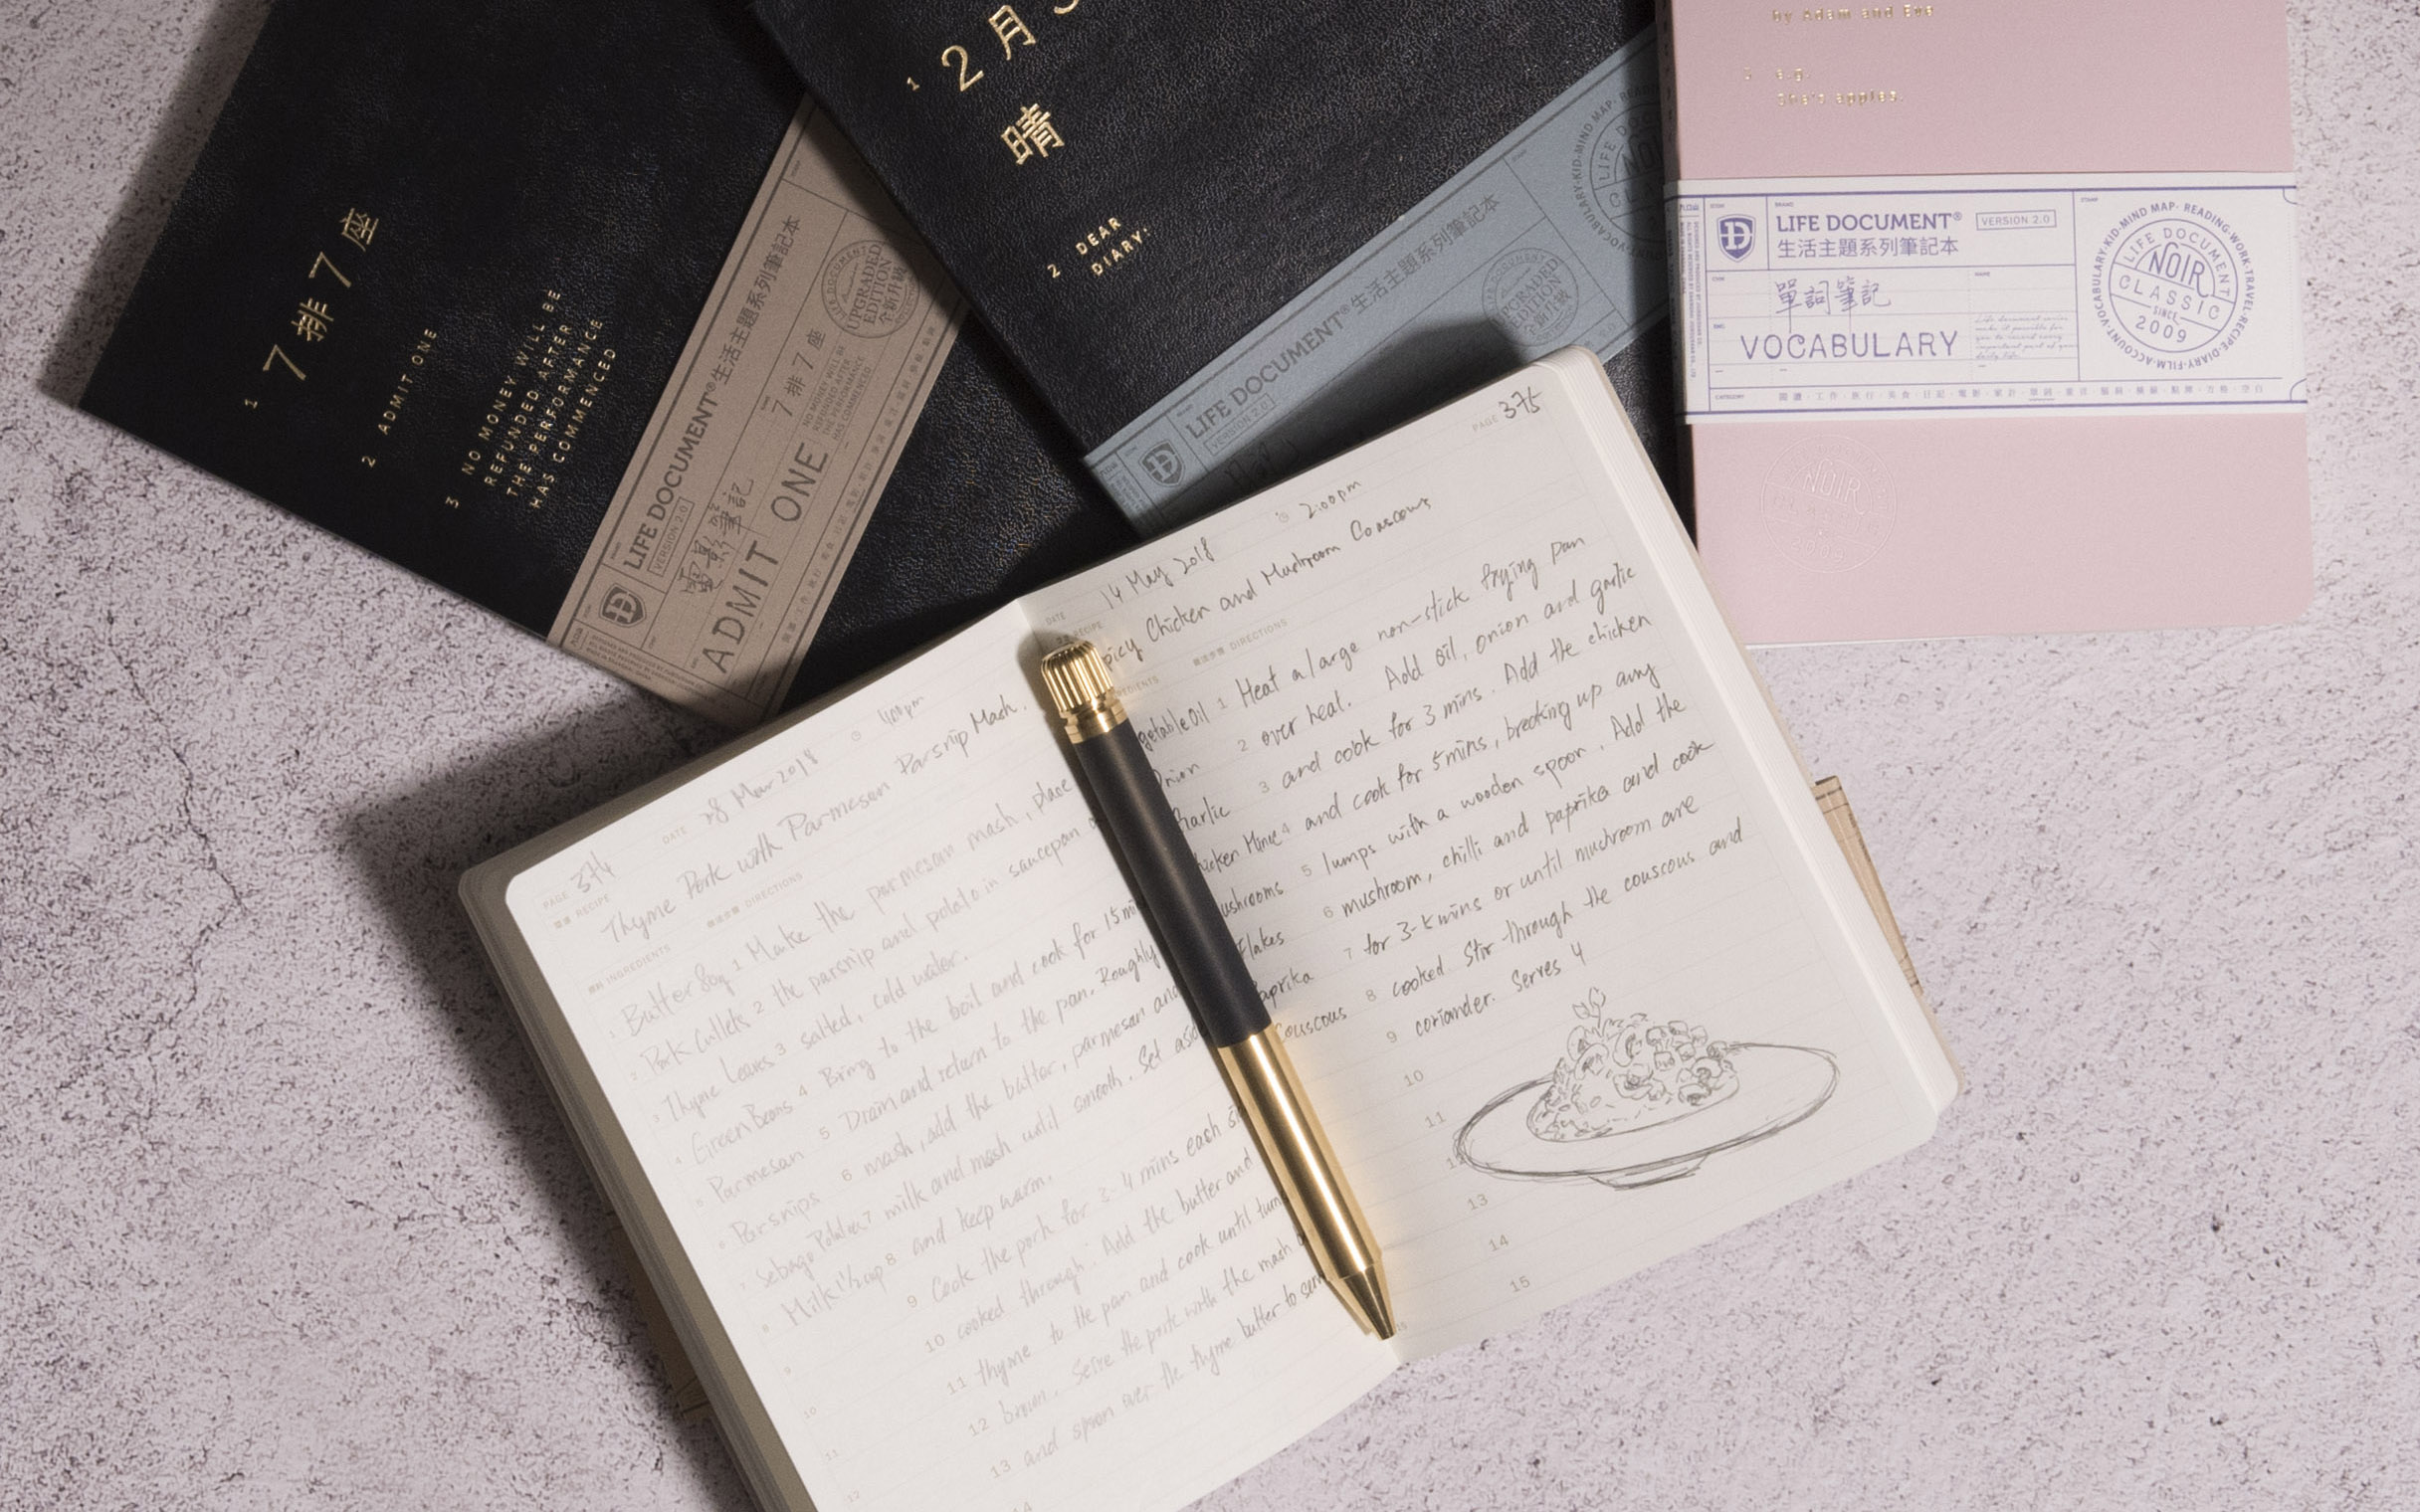 1 7排7座
2 ADMIT ONE
3 NO MONEY WILL BE
REFUNDED AFTER
THE PERFORMANCE
HAS COMMENCED
LIFE DOCUMENT® 生活主題系列筆記本
VERSION 2.0
UPGRADED
EDITION
全新升級
電影筆記
7排7座
NO MONEY WILL BE
REFUNDED AFTER
THE PERFORMANCE
HAS COMMENCED
ADMIT ONE
1 2月
晴
2 DEAR
DIARY:
LIFE DOCUMENT® 生活主題系列筆記本
VERSION 2.0
UPGRADED
EDITION
全新升級
by Adam and Eve
e.g.
She's apples.
LIFE DOCUMENT® VERSION 2.0
生活主題系列筆記本
單詞筆記
VOCABULARY
MIND MAP· READING·WORK·TRAVEL·RECIPE·DIARY·FILM·ACCOUNT·VOCABULARY·KID·
LIFE DOCUMENT
NOIR
CLASSIC
SINCE
2009
CATEGORY
NOIR
2009
PAGE 374 DATE 28 Mar 2018
RECIPE Thyme Pork with Parmesan Parsnip Mash.
INGREDIENTS DIRECTIONS
1 Butter 80g 1 Make the parmesan mash, place
2 Pork Cutlets 2 the parsnip and potato in saucepan
3 Thyme Leaves 3 salted, cold water.
4 Green Beans 4 Bring to the boil and cook for 15 min
5 Parmesan 5 Drain and return to the pan. Roughly
6 Parsnips 6 mash, add the butter, parmesan and
7 Sebago Potatoes 7 milk and mash until smooth. Set asi
8 Milk 1/2 cup 8 and keep warm.
9 9 Cook the pork for 3-4 mins each si
10 10 cooked through. Add the butter and
11 11 thyme to the pan and cook until turn
12 12 brown. Serve the pork with the mash
13 and spoon over the thyme butter to serv
14
PAGE 375
DATE 14 May 2018 2:00pm
RECIPE picy Chicken and Mushroom Couscous
REDIENTS DIRECTIONS
getable Oil 1 Heat a large non-stick frying pan
Onion 2 over heat. Add oil, onion and garlic
Garlic 3 and cook for 3 mins. Add the chicken
hicken Mince 4 and cook for 5 mins, breaking up any
ushrooms 5 lumps with a wooden spoon. Add the
Flakes 6 mushroom, chilli and paprika and cook
aprika 7 for 3-5 mins or until mushroom are
Couscous 8 cooked. Stir through the couscous and
9 coriander. Serves 4
10
11
12
13
14
15